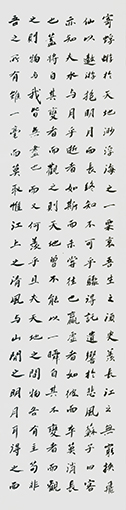 寄蜉蝣於天地渺浮海之一粟哀吾生之須臾羨長江之無窮挾飛
仙以遨遊抱明月而長終知不可乎驟得託遺響於悲風蘇子曰客
亦知夫水與月乎逝者如斯而未嘗往也盈虛者如彼而卒莫消長
也蓋將自其變者而觀之則天地曾不能以一瞬自其不變者而觀
之則物與我皆無盡也而又何羨乎且夫天地之間物各有主苟非
吾之所有雖一毫而莫取惟江上之清風與山間之明月耳得之而